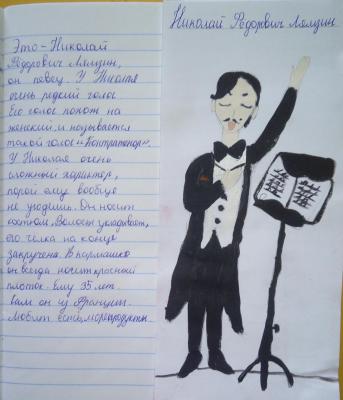 Это - Николай
Фёдорович Лямзин,
он певец. У Николя
очень редкий голос
Его голос похож на
женский, и называется
такой голос "Контратенор".
У Николая очень
сложный характер,
порой ему вообще
не угодишь. Он носит
костюм, Волосы укладывает,
его чёлка на конце
закручена. В кармашке
он всегда носит красный
платок. Ему 35 лет.
сам он из Франции.
Любит есть морепродукты.
Николай Фёдорович Лямзин